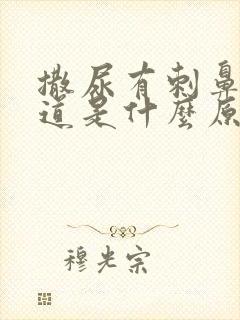 撒尿有刺鼻
道是什麼原
穆光宗